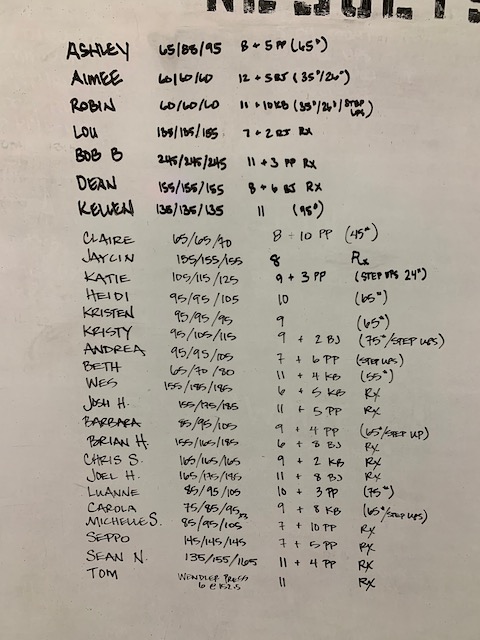 ASHLEY 65/85/95 8 + 5 PP (65#)
AIMEE 60/60/60 12 + 5 BJ (35#/20")
ROBIN 60/60/60 11 + 10 KB (35#/26/STEP UPS)
LOU 7 + 2 BJ RX
BOB B 245/245/245 11 + 3 PP RX
DEAN 155/155/155 8 + 6 BJ RX
KELLEN 135/135/135 11 (95#)
CLAIRE 65/65/70 8 + 10 PP (45#)
JAYCIN 155/155/155 8 RX
KATIE 105/115/125 9 + 3 PP (STEP UPS 24")
HEIDI 95/95/105 10 (65#)
KRISTEN 95/95/95 9 (65#)
KRISTY 95/105/115 9 + 2 BJ (75#/STEP UPS)
ANDREA 95/95/105 7 + 6 PP (STEP UPS)
BETH 65/70/80 11 + 4 KB (55#)
WES 155/185/185 6 + 5 KB RX
JOSH H. 155/175/185 11 + 5 PP RX
BARBARA 85/95/105 9 + 4 PP (65#/STEP UP)
BRIAN H. 155/165/185 6 + 8 BJ RX
CHRIS S. 165/165/165 9 + 2 KB RX
JOEL H. 165/175/175 11 + 8 BJ RX
LUANNE 85/95/105 10 + 3 PP (75#)
CAROLA 75/85/95 9 + 8 KB (65#/STEP UPS)
MICHELLE S. 85/95/105 7 + 10 PP RX
SEPPO 145/145/145 7 + 5 PP RX
SEAN N. 135/155/165 11 + 4 PP RX
TOM WENDLER PRESS 11 RX
6 @ 152.5